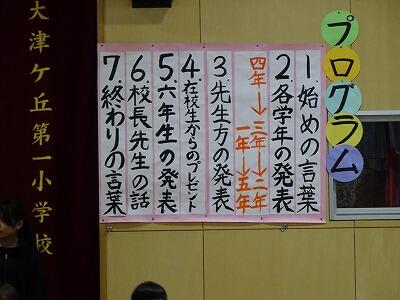 プログラム
1.始めの言葉
2.各学年の発表
四年→三年→二年
一年→五年
3.先生方の発表
4.在校生からのプレゼント
5.六年生の発表
6.校長先生の話
7.終わりの言葉
大津ケ丘第一小学校